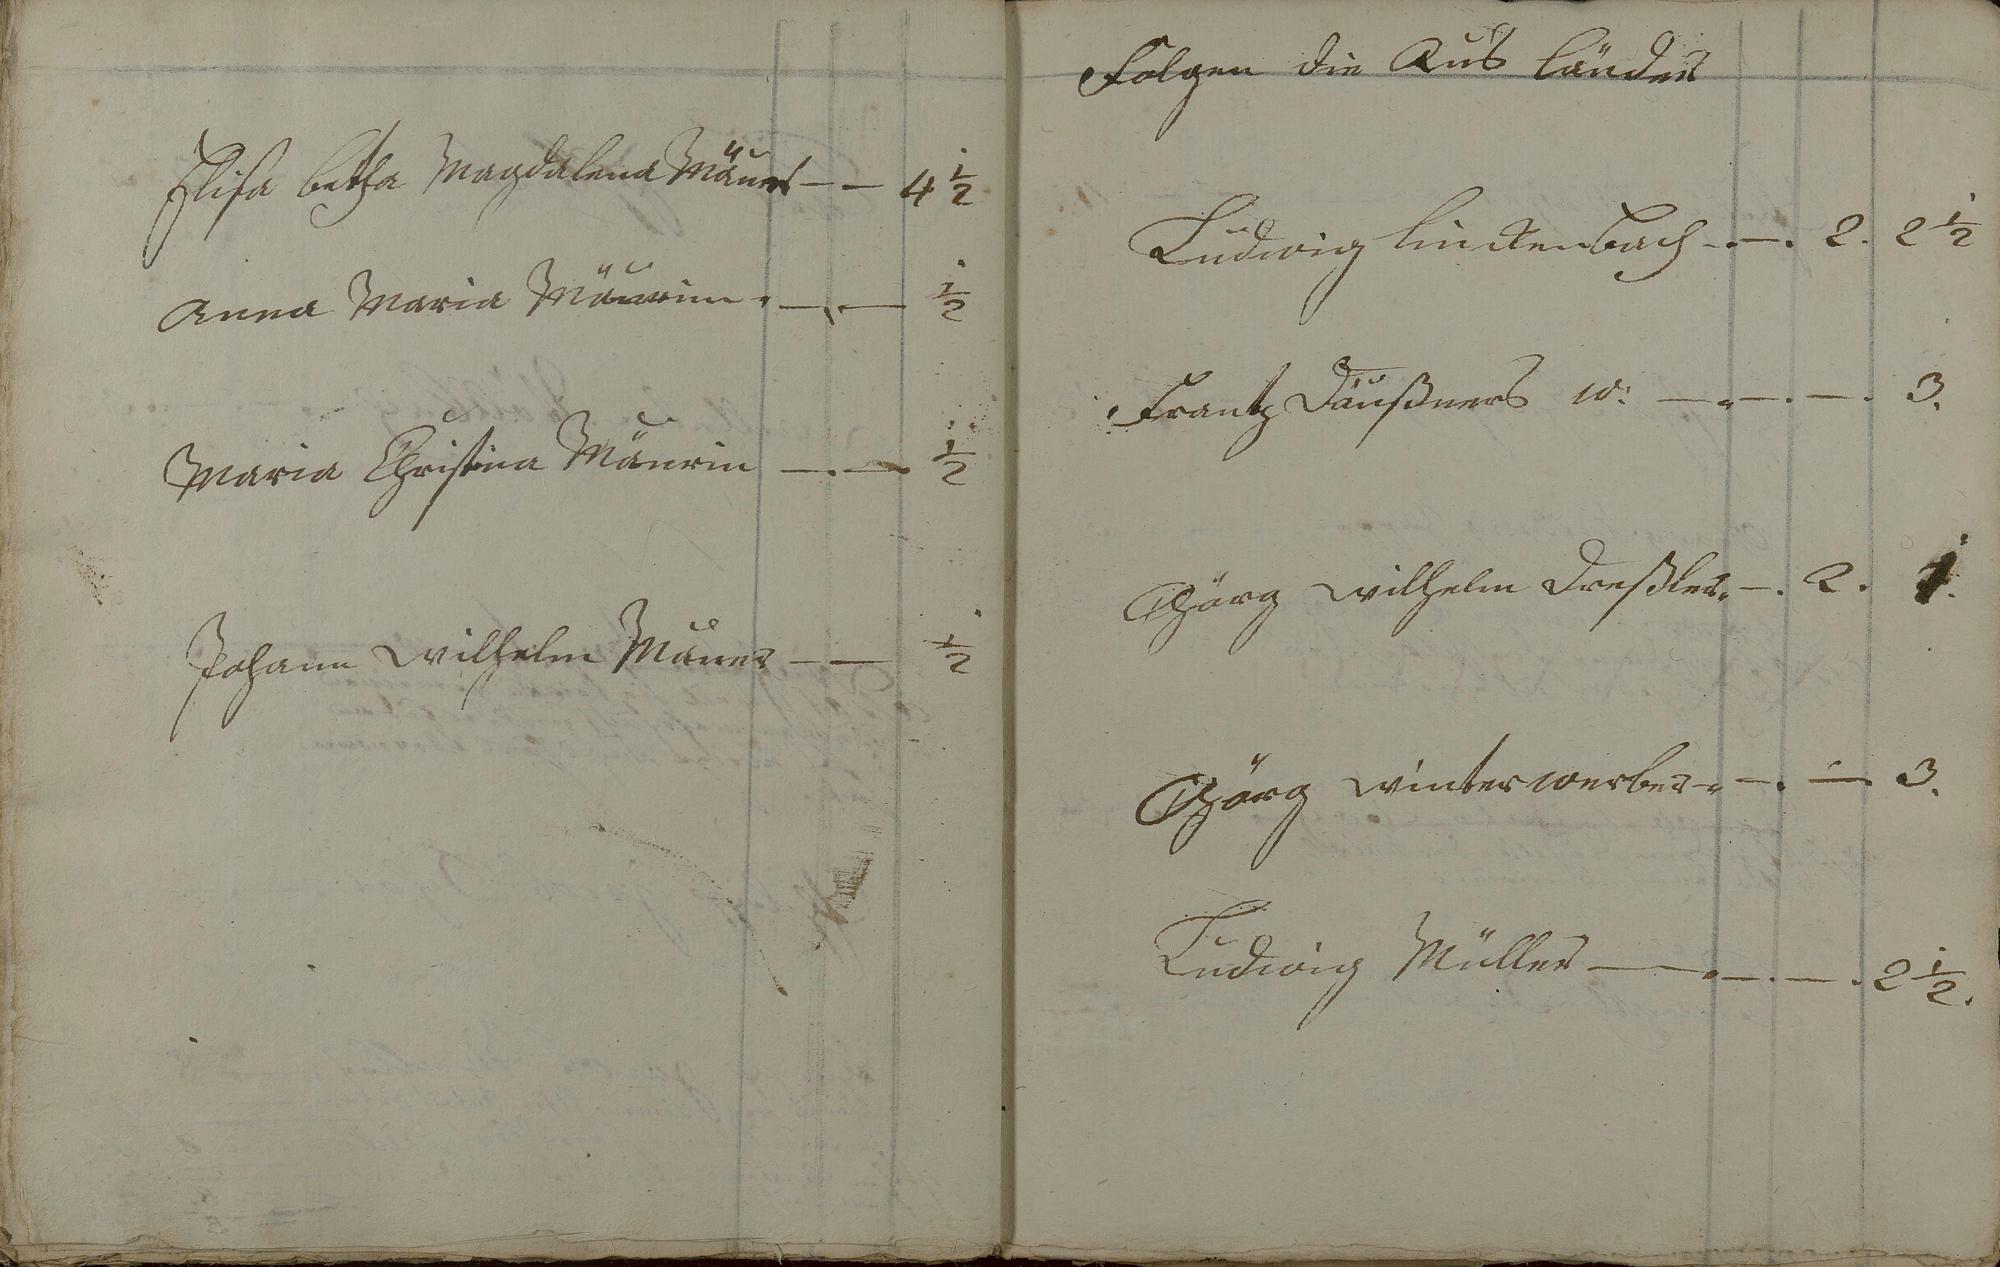 Elisa betha Magdalena Mäuer — — 4 1/2
Anna Maria Mäurin — — 1/2
Maria Christina Mäurin — — 1/2
Johann Wilhelm Mäuer — — 1/2
Folgen die Aus länder
Ludwig Linckenbach — — 2. 2 1/2
Frantz Däußners w: — — — 3.
Görg Wilhelm Dreßler — 2. 1.
Görg Winterwerber — — 3.
Ludwig Müller — — — 2 1/2.